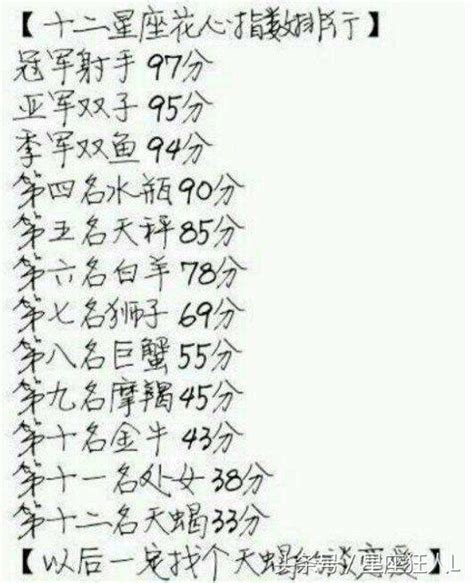 【十二星座花心指数排行】
冠军射手 97分
亚军双子 95分
季军双鱼 94分
第四名水瓶 90分
第五名天秤 85分
第六名白羊 78分
第七名狮子 69分
第八名巨蟹 55分
第九名摩羯 45分
第十名金牛 43分
第十一名处女 38分
第十二名天蝎 33分
【以后一定找个天蝎
头条号/星座狂人L